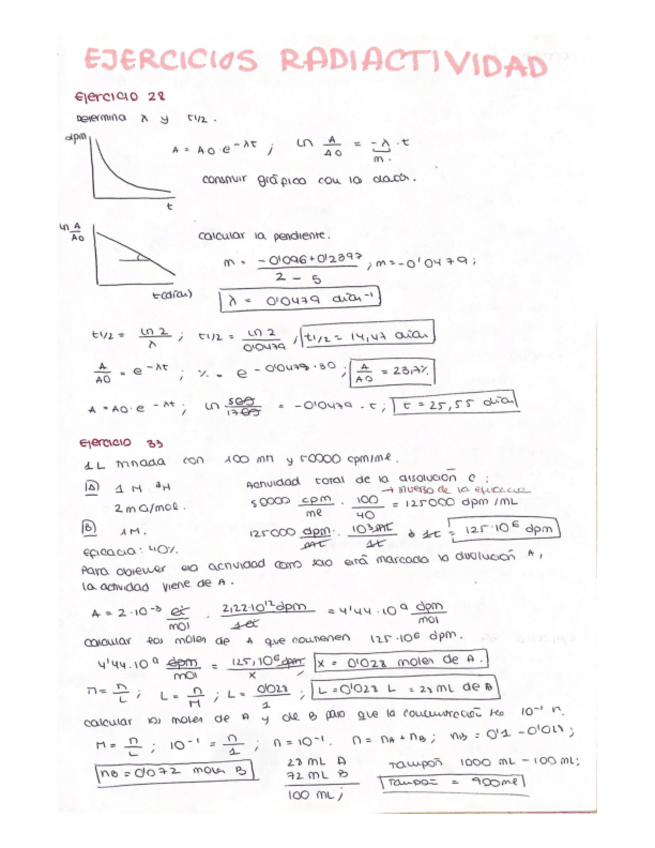 EJERCICIOS RADIACTIVIDAD
Ejercicio 28
Determina λ y t1/2.
dpm
t
A = A0·e^-λt ; ln A/A0 = -λ·t
m.
construir gráfico con la
ln A/A0
t(días)
calcular la pendiente.
m = -0'096+0'2397 / 2 - 5 ; m=-0'0479;
λ = 0'0479 días⁻¹
t1/2 = ln 2/λ ; t1/2 = ln 2/0'0479 ; t1/2 = 14,47 días
A/A0 = e^-λt ; % = e^-0'0479·30 ; A/A0 = 23,7%
A = A0·e^-λt ; ln 500/1700 = -0'0479·t ; t = 25,55 días
Ejercicio 33
1L con 100 mM y 50000 cpm/mL.
A 1 M ³H
2 mCi/mol.
B 1M.
Eficacia: 40%.
Actividad total de la disolución C :
→ inverso de la eficacia
50000 cpm/mL · 100/40 = 125000 dpm/mL
125000 dpm/mL · 10³mL/1L · 1L = 125·10⁶ dpm
Para obtener esa actividad como solo está marcada la disolución A,
la actividad viene de A.
A = 2·10⁻³ Ci/mol · 2,22·10¹² dpm/1Ci = 4'44·10⁹ dpm/mol
calcular los moles de A que contienen 125·10⁶ dpm.
4'44·10⁹ dpm/mol = 125·10⁶ dpm/x X = 0'028 moles de A.
M = n/L ; L = n/M ; L = 0'028/1 ; L = 0'028 L = 28 mL de A
calcular los moles de A y de B para que la concentración sea 10⁻¹ M.
M = n/L ; 10⁻¹ = n/1 ; n = 10⁻¹. n = nA + nB ; nB = 0'1 - 0'028 ;
nB = 0'072 moles B
28 mL A
72 mL B
100 mL;
Tampón 1000 mL - 100 mL;
Tampón = 900 mL